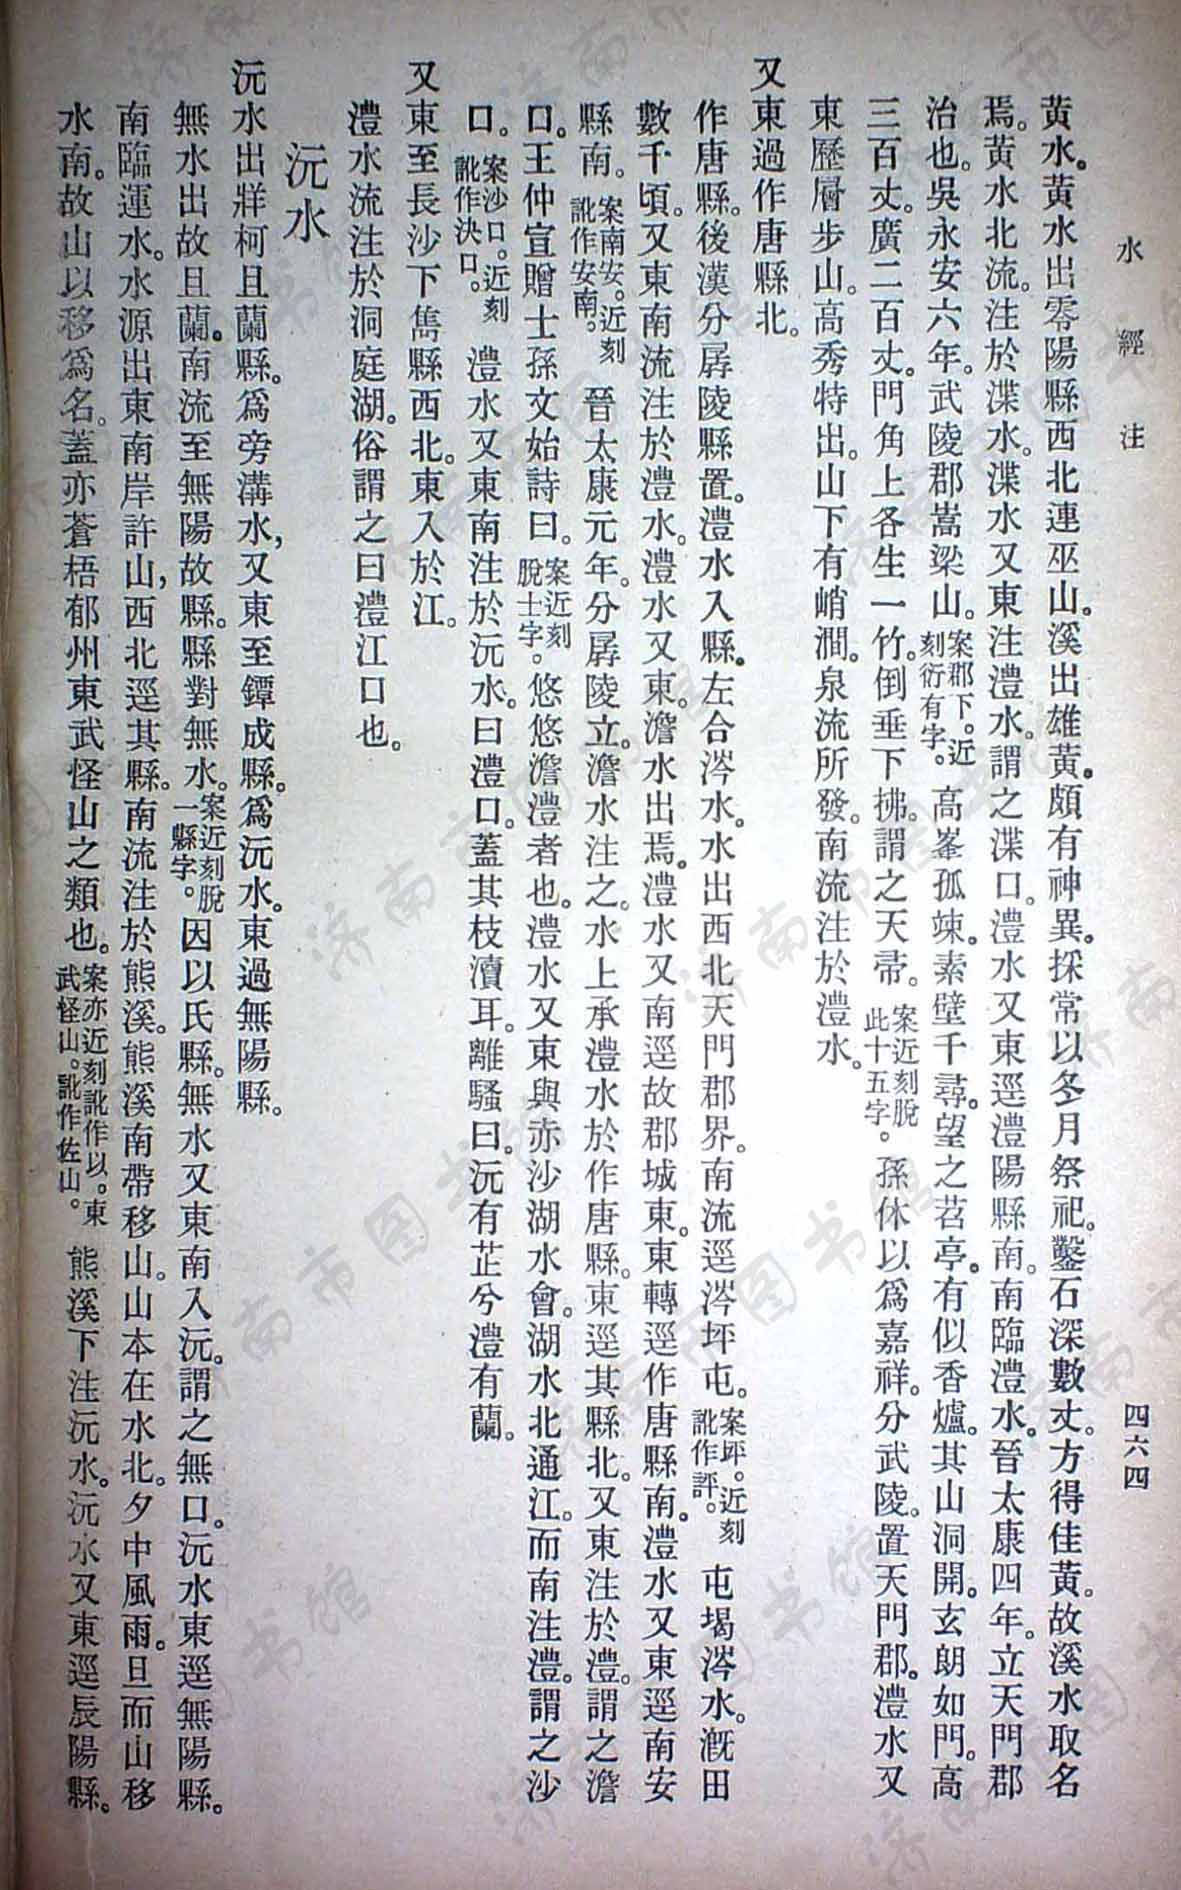 水經注
四六四
黃水。黃水出零陽縣西北連巫山。溪出雄黃。頗有神異。採常以冬月祭祀。鑿石深數丈。方得佳黃。故溪水取名
焉。黃水北流。注於渫水。渫水又東注澧水。謂之渫口。澧水又東逕澧陽縣南。南臨澧水。晉太康四年。立天門郡
治也。吳永安六年。武陵郡嵩梁山。案郡下。近刻衍有字。高峯孤竦。素壁千尋。望之苕亭。有似香爐。其山洞開。玄朗如門。高
三百丈。廣二百丈。門角上各生一竹。倒垂下拂。謂之天帚。案近刻脫此十五字。孫休以爲嘉祥。分武陵。置天門郡。澧水又
東歷層步山。高秀特出。山下有峭澗。泉流所發。南流注於澧水。
又東過作唐縣北。
作唐縣。後漢分孱陵縣置。澧水入縣。左合涔水。水出西北天門郡界。南流逕涔坪屯。案坪。近刻訛作評。屯堨涔水。溉田
數千頃。又東南流注於澧水。澧水又東。澹水出焉。澧水又南逕故郡城東。東轉逕作唐縣南。澧水又東逕南安
縣南。案南安。近刻訛作安南。晉太康元年。分孱陵立。澹水注之。水上承澧水於作唐縣。東逕其縣北。又東注於澧。謂之澹
口。王仲宣贈士孫文始詩曰。案近刻脫士字。悠悠澹澧者也。澧水又東與赤沙湖水會。湖水北通江。而南注澧。謂之沙
口。案沙口。近刻訛作決口。澧水又東南注於沅水。曰澧口。蓋其枝瀆耳。離騷曰。沅有芷兮澧有蘭。
又東至長沙下雋縣西北。東入於江。
澧水流注於洞庭湖。俗謂之曰澧江口也。
沅水
沅水出牂柯且蘭縣。爲旁溝水，又東至鐔成縣。爲沅水。東過無陽縣。
無水出故且蘭。南流至無陽故縣。縣對無水。案近刻脫一縣字。因以氏縣。無水又東南入沅。謂之無口。沅水東逕無陽縣。
南臨運水。水源出東南岸許山，西北逕其縣。南流注於熊溪。熊溪南帶移山。山本在水北。夕中風雨。旦而山移
水南。故山以移爲名。蓋亦蒼梧郁州東武怪山之類也。案亦近刻訛作以。東武怪山。訛作佐山。熊溪下注沅水。沅水又東逕辰陽縣。